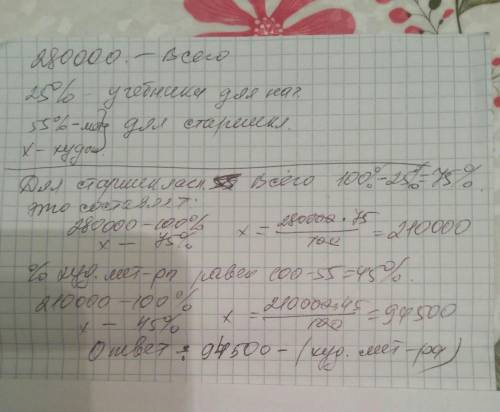 280000 - Всего
25% - учебники для нач.
55% - мет } для старшкл.
х - худож.
Для старшекласн. Всего 100% - 25% = 75%.
это составляет.
280000 - 100%
х - 75%
х = 280000 • 75 / 100 = 210000
% худ. лит-ры равен 100 - 55 = 45%.
210000 - 100%
х - 45%
х = 210000•45 / 100 = 94500
Ответ : 94500 - (худ. лит-ра)